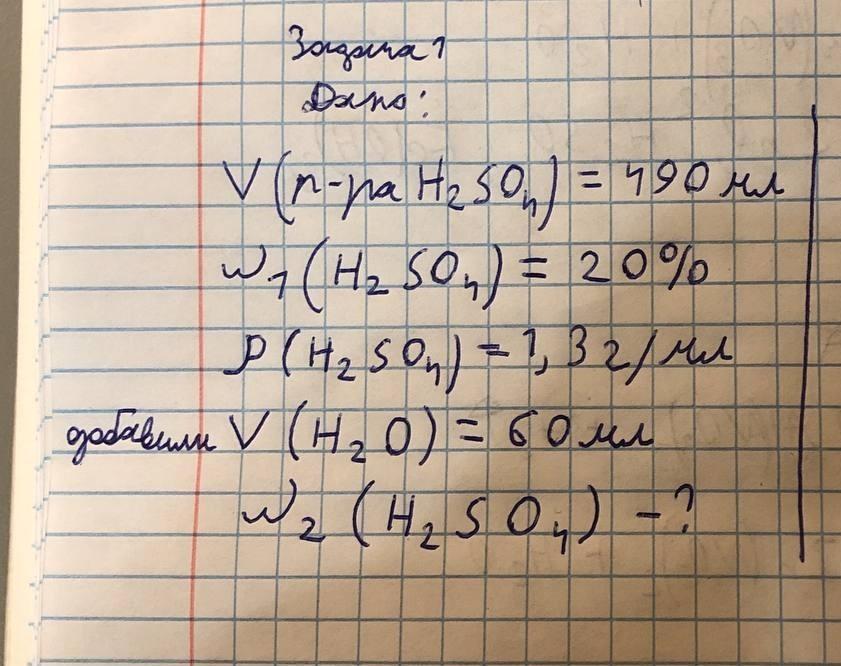 Задача 1
Дано:
V (р-ра H₂SO₄) = 490 мл
w₁ (H₂SO₄) = 20%
ρ (H₂SO₄) = 1,3 г/мл
добавили V (H₂O) = 60 мл
w₂ (H₂SO₄) - ?